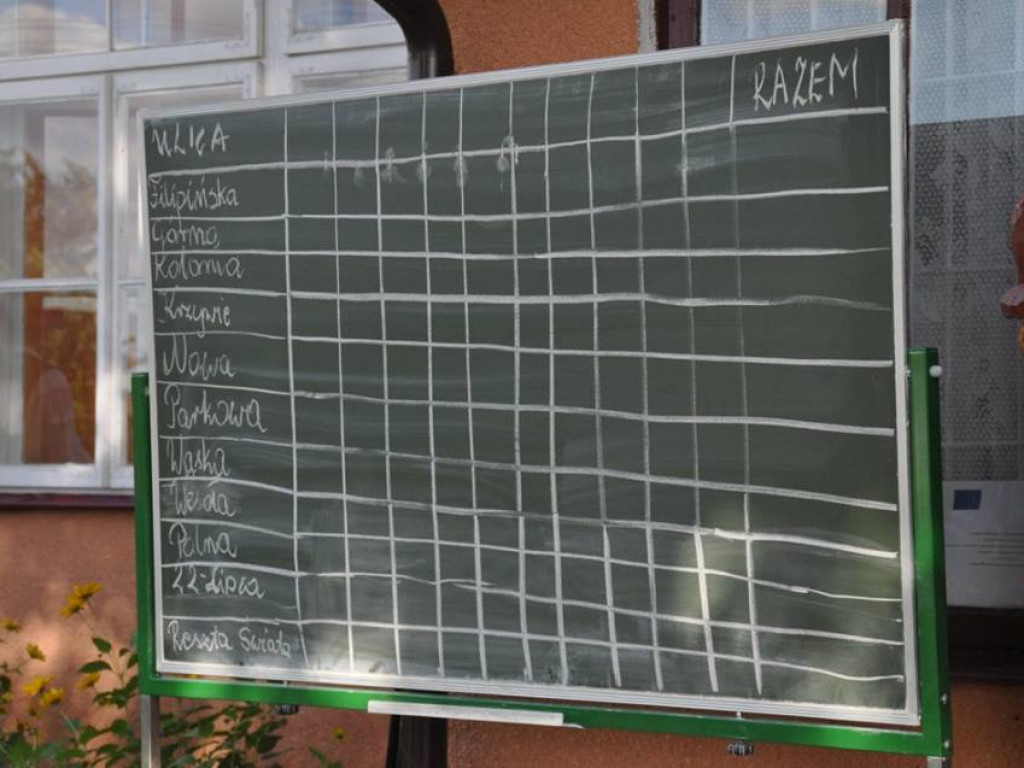 ULICA
RAZEM
Filipińska
Górna
Kolonia
Krzywie
Nowa
Parkowa
Wąska
Polna
22-Lipca
Reszta Świata